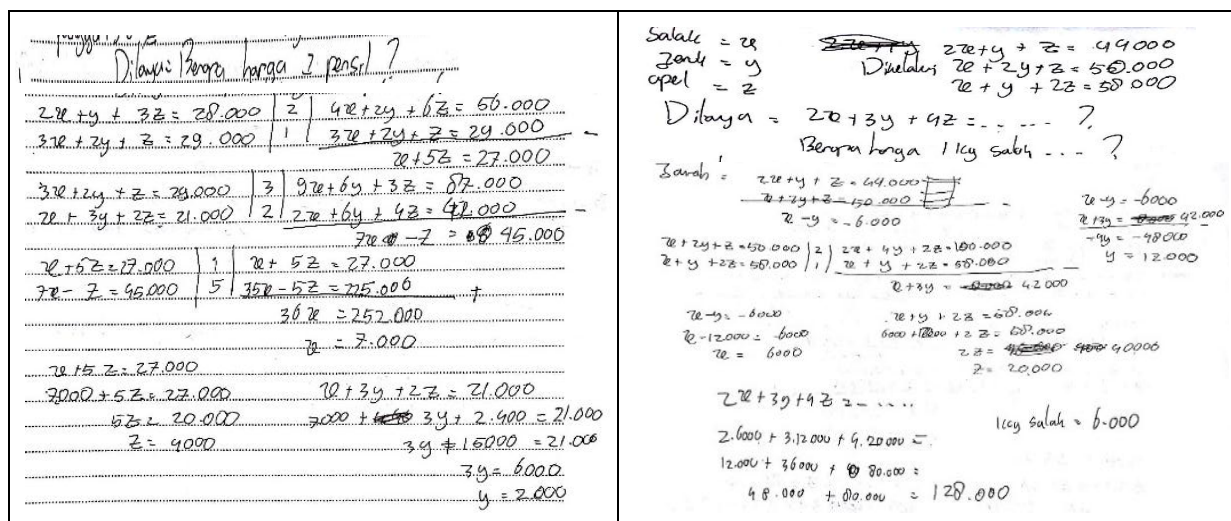 Ditanya: Berapa harga 2 pensil ?
2x+y + 3z = 28.000 | 2 | 4x+2y+6z = 56.000
3x+2y+z = 29.000 | 1 | 3x+2y+z = 29.000 -
x+5z = 27.000
3x+2y+z = 29.000 | 3 | 9x+6y+3z = 87.000
x+3y+2z = 21.000 | 2 | 2x+6y+4z = 42.000 -
7x - z = 45.000
x+5z = 27.000 | 1 | x+5z = 27.000
7x - z = 45.000 | 5 | 35x-5z = 225.000 +
36x = 252.000
x = 7.000
x+5z = 27.000
7000+5z = 27.000
5z = 20.000
z = 4000
x+3y+2z = 21.000
7000 + 3y + 2.400 = 21.000
3y + 15000 = 21.000
3y = 6000
y = 2.000
Salak = x
Jeruk = y
apel = z
2x+y+z = 44000
Diketahui x+2y+z = 50.000
x+y+2z = 58.000
Ditanya = 2x+3y+4z = ...... ?
Berapa harga 1 kg salak ... ?
Jawab :
2x+y+z = 44.000
x+2y+z = 50.000
x-y = -6.000
x+2y+z = 50.000 | 2 | 2x+4y+2z = 100.000
x+y+2z = 58.000 | 1 | x+y+2z = 58.000
x+3y = 42000
x-y = -6000
x+3y = 42.000
-4y = -48000
y = 12.000
x-y = -6000
x-12000 = -6000
x = 6000
x+y+2z = 58.000
6000+12000+2z = 58.000
2z = 40000
z = 20.000
2x+3y+4z = .....
2.6000 + 3.12000 + 4.20000 =
12.000 + 36000 + 80.000 =
48.000 + 80.000 = 128.000
1 kg salak = 6.000